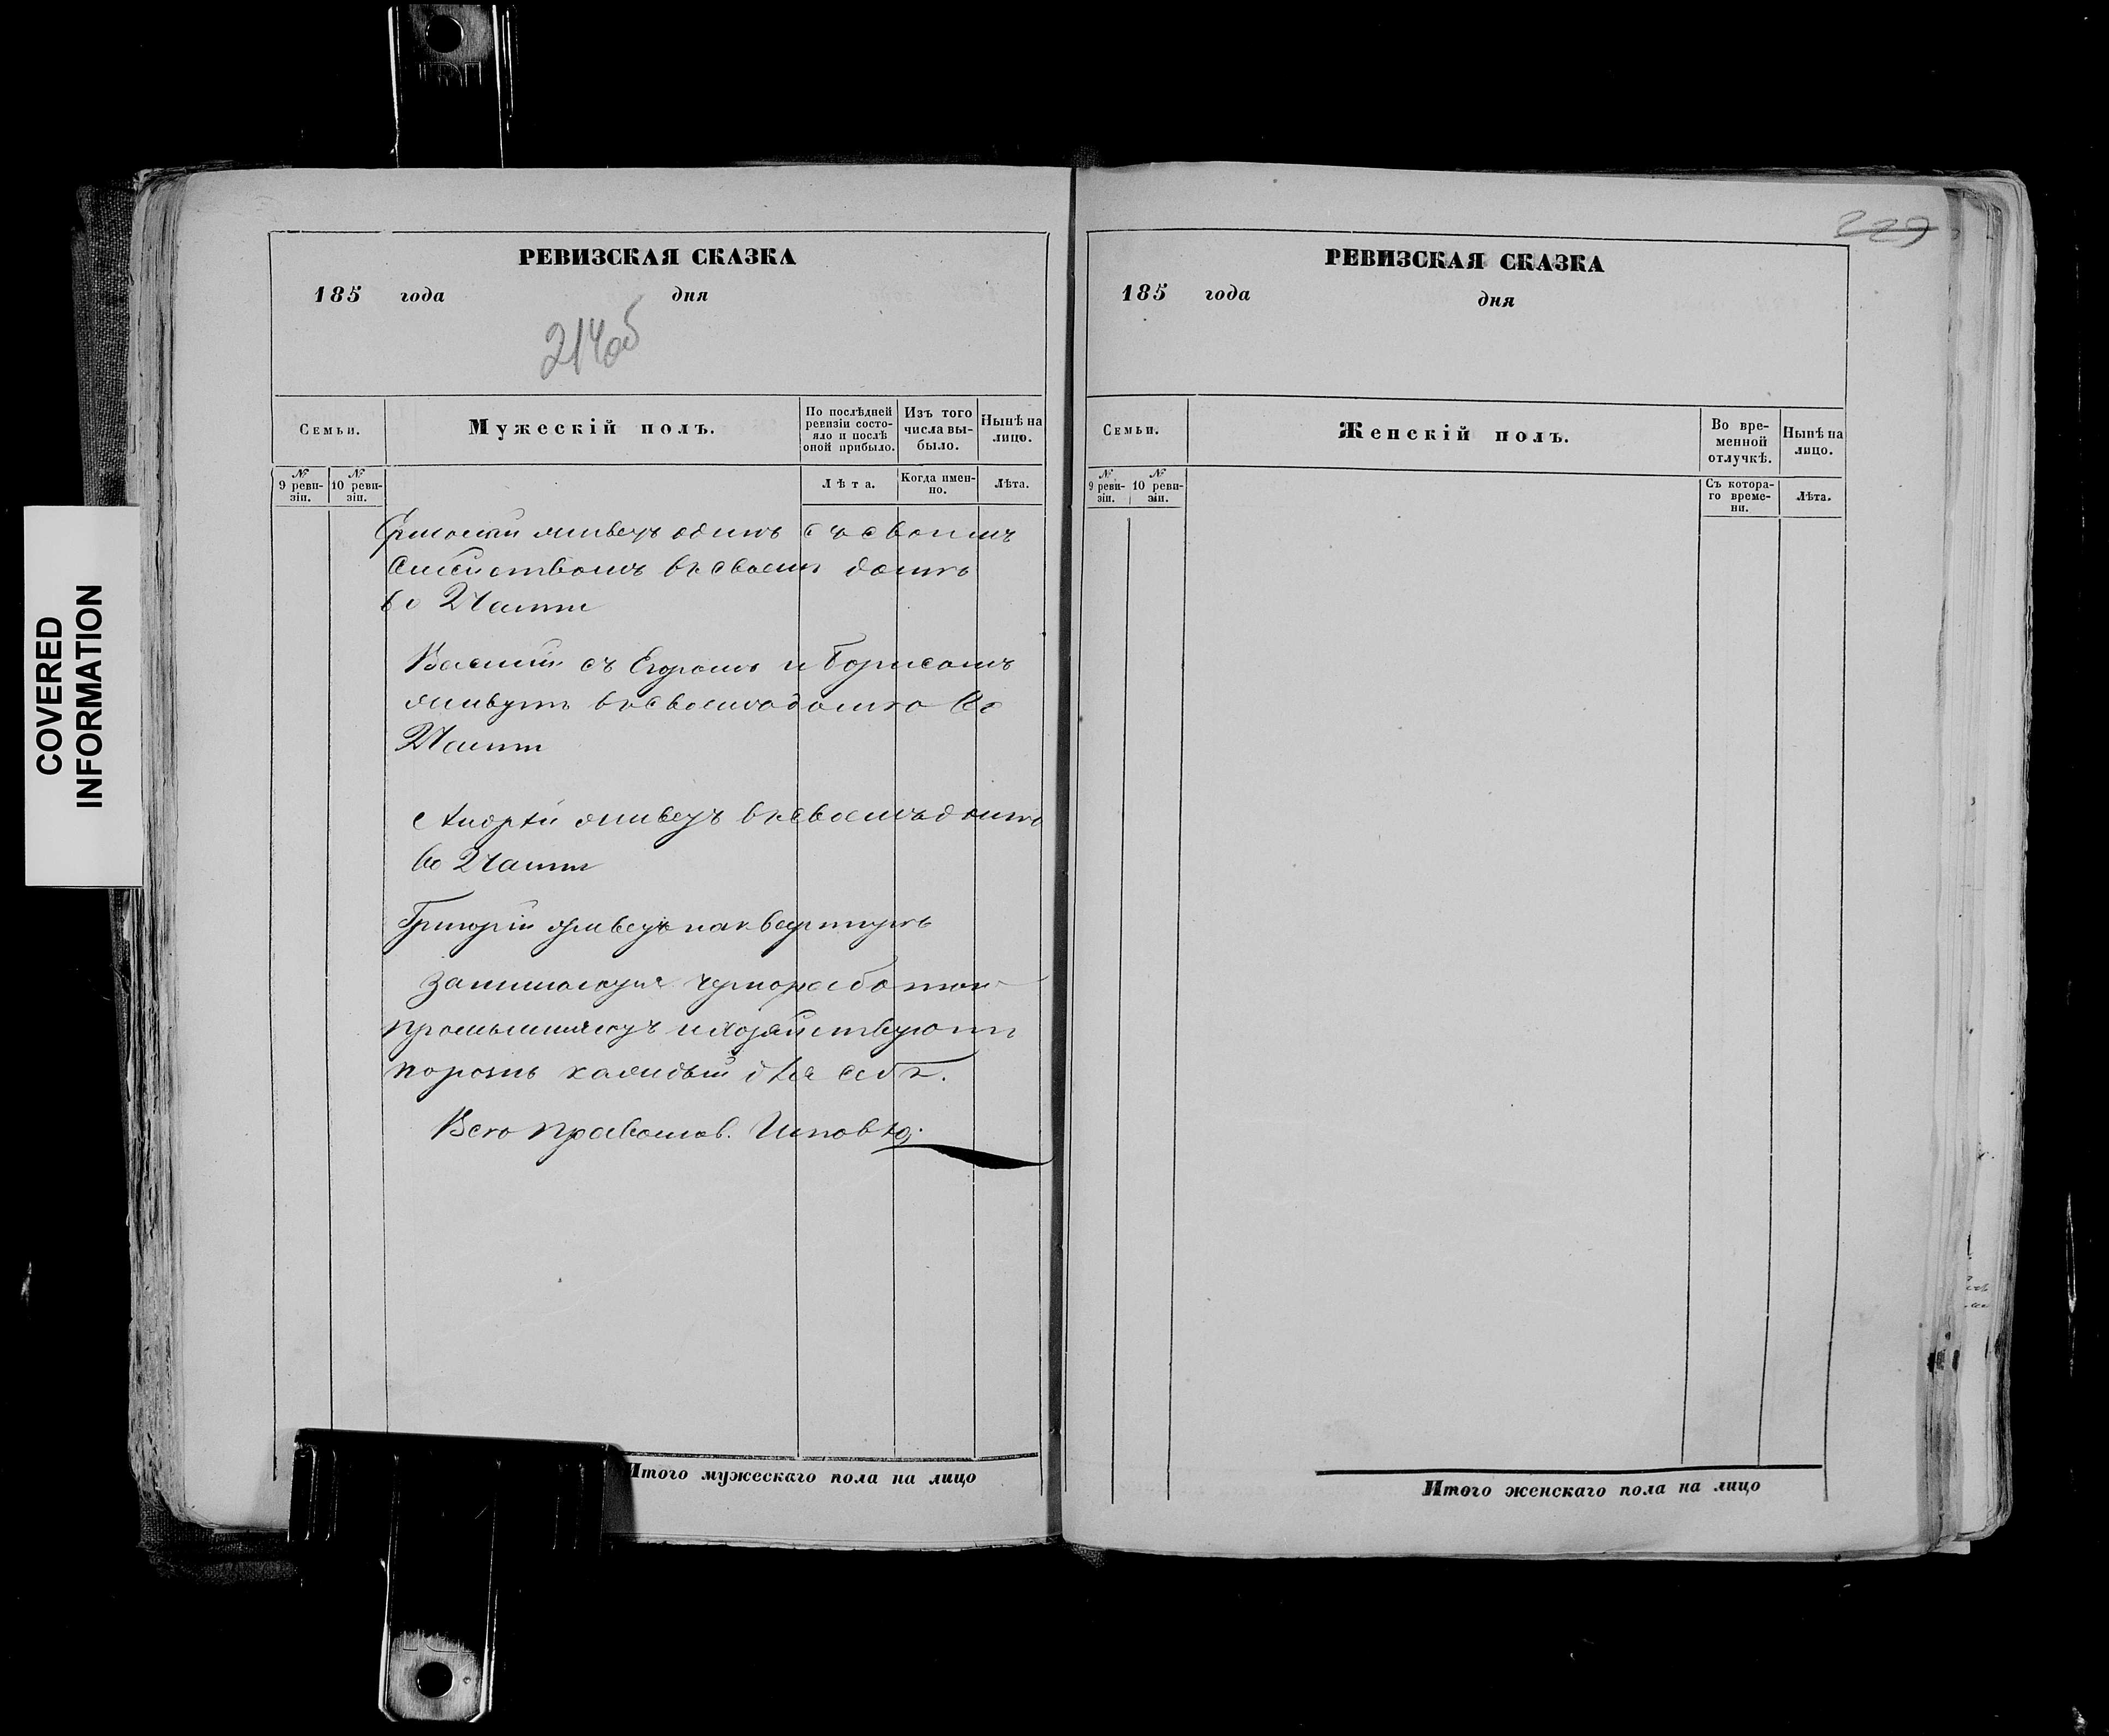 229
РЕВИЗСКАЯ СКАЗКА
185 года дня
214об
Семьи.
Мужескій полъ.
По послѣдней ревизіи состояло и послѣ оной прибыло.
Изъ того числа выбыло.
Нынѣ на лицо.
№ 9 ревизіи.
№ 10 ревизіи.
Лѣта.
Когда именно.
Лѣта.
живетъ одинъ съ своимъ
семействомъ въ своемъ домѣ
во 2 Части
Василій съ Егоромъ и Борисомъ
живутъ въ своемъ домѣ во
2 Части
Андрей живетъ въ своемъ домѣ
во 2 Части
Григорій живетъ на квартирѣ
Занимаются
и хозяйствуютъ
порознь каждый для себя.
РЕВИЗСКАЯ СКАЗКА
185 года дня
Семьи.
Женскій полъ.
Во временной отлучкѣ.
Нынѣ на лицо.
№ 9 ревизіи.
№ 10 ревизіи.
Съ котораго времени.
Лѣта.
Итого мужескаго пола на лицо
Итого женскаго пола на лицо
COVERED
INFORMATION